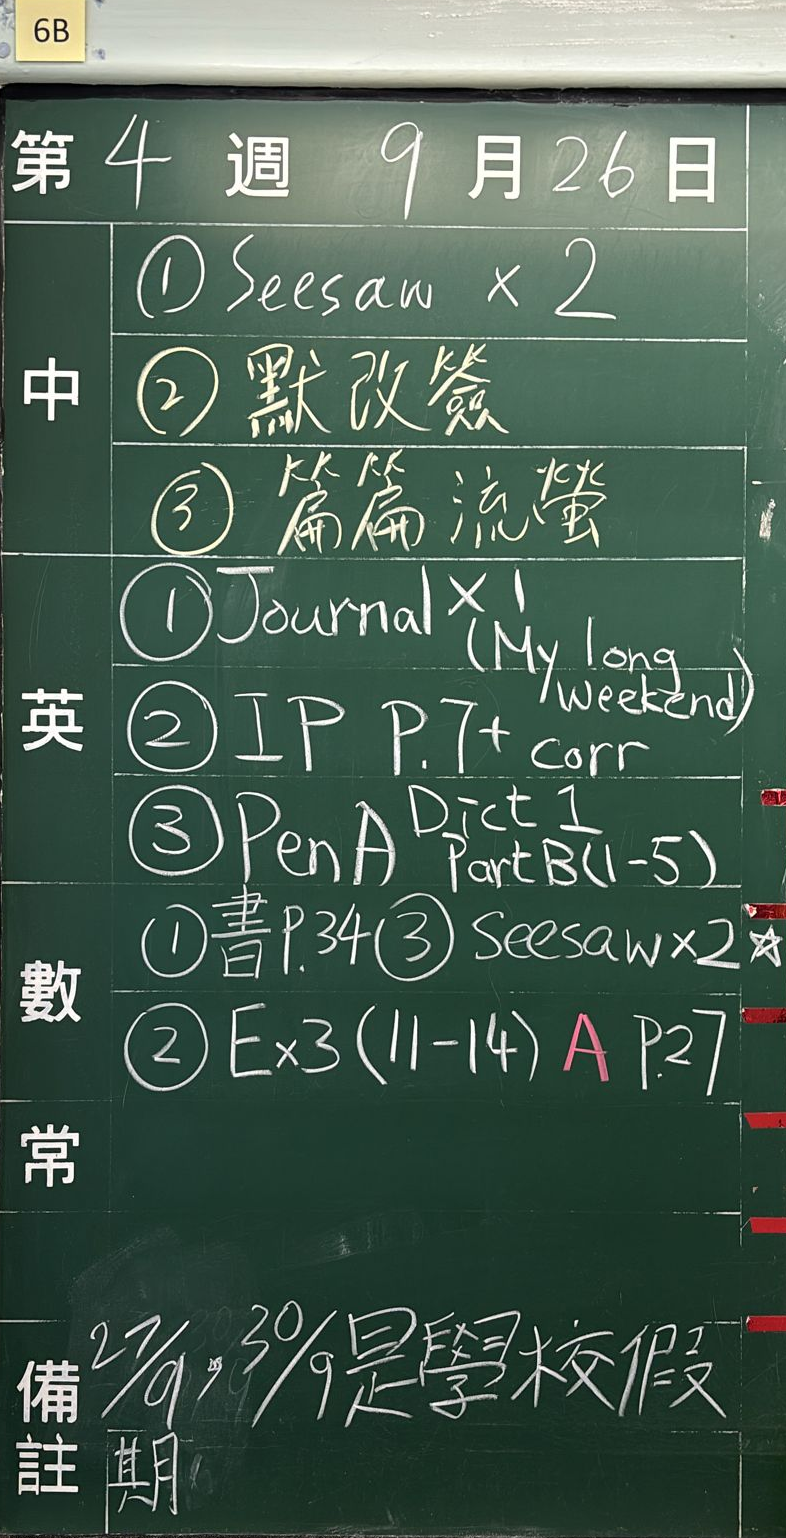 6B
第 4 週 9 月 26 日
中
① Seesaw × 2
② 默改簽
③ 篇篇流螢
英
① Journal × 1
(My long
weekend)
② IP P.7 + corr
③ Pen A Dict 1
Part B (1-5)
數
① 書 P.34 ③ Seesaw × 2 ☆
② Ex3 (11-14) A P.27
常
備註
27/9, 30/9 是學校假
期